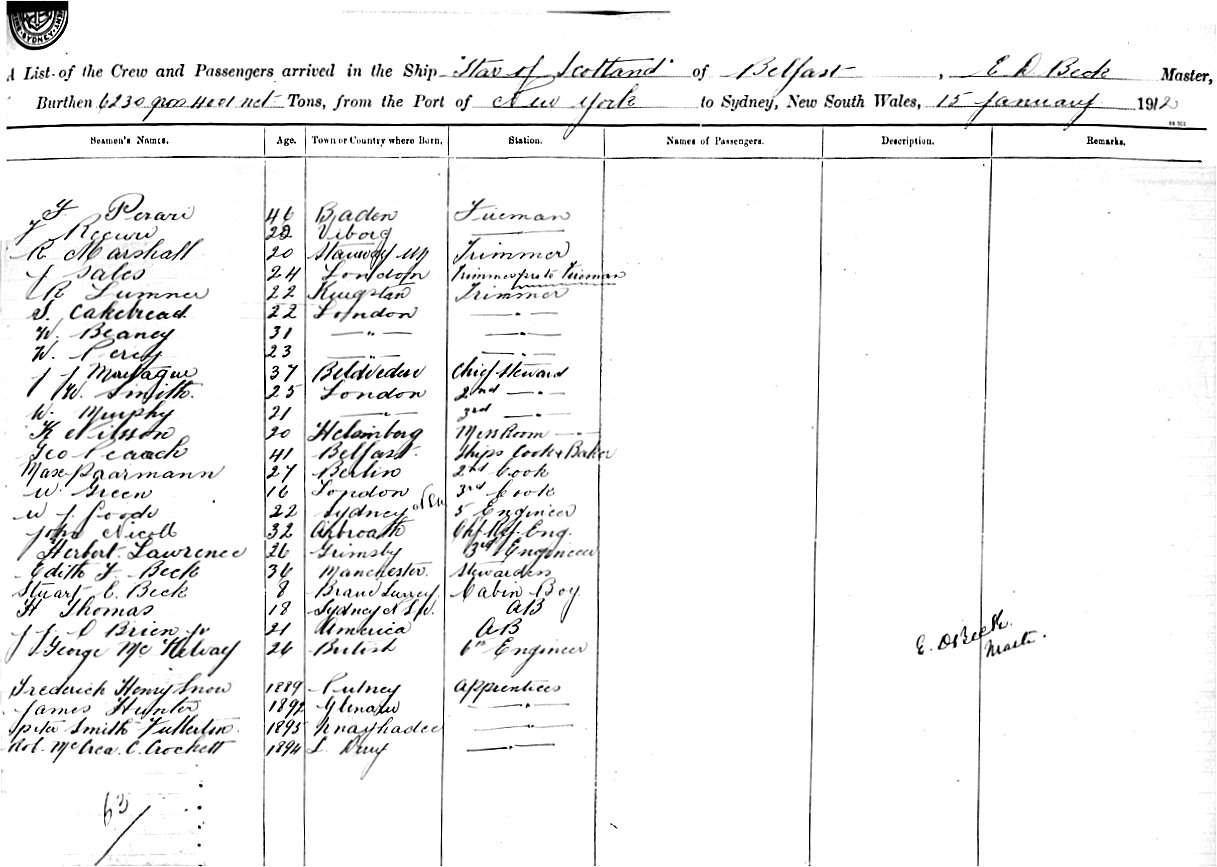 SYDNEY
A List of the Crew and Passengers arrived in the Ship "Star of Scotland" of Belfast, E D Beck Master,
Burthen 6230 gros 4001 net Tons, from the Port of New York to Sydney, New South Wales, 15 January 1912
Seamen's Names. Age. Town or Country where Born. Station. Names of Passengers. Description. Remarks.
F Perari 46 Baden Fireman
J 22 Viborg ———
R Marshall 20 Stanway Trimmer
J Sales 24 London Trimmer pro to Fireman
R Lumner 22 Kingstan Trimmer
S. Cakebread 22 London — " —
W. Beaney 31 — " — — " —
W. Percy 23 — " — — " —
J J Montague 37 Belvedere Chief Steward
J W. Smith. 25 London 2nd — " —
W. Murphy 21 — " — 3rd — " —
K Nilsson 20 Helsinborg Mess Room — " —
Geo Peaach 41 Belfast. Ships Cook & Baker
Max Paarmann 27 Berlin 2nd Cook
W. Green 16 London 3rd Cook
W J Goode 22 Sydney N S W 5 Engineer
John Nicoll 32 Arbroath Chf Ref Eng.
Herbert Lawrence 26 Grimsby 3rd Engineer
Edith F Beck 36 Manchester. Stewardess
Stuart E. Beck 8 Surrey. Cabin Boy
H Thomas 18 Sydney N S W. AB
J J O Brien Jr 21 America AB
George Mc Kelvay 26 British 6th Engineer
E. D Beck.
Master.
Frederick Henry Snow 1889 Putney Apprentices
James Hunter 1892 Glenarm — " —
Peter Smith Fullerton. 1895 — " —
Rob. McCrea. C. Crockett 1894 L. Derry — " —
63